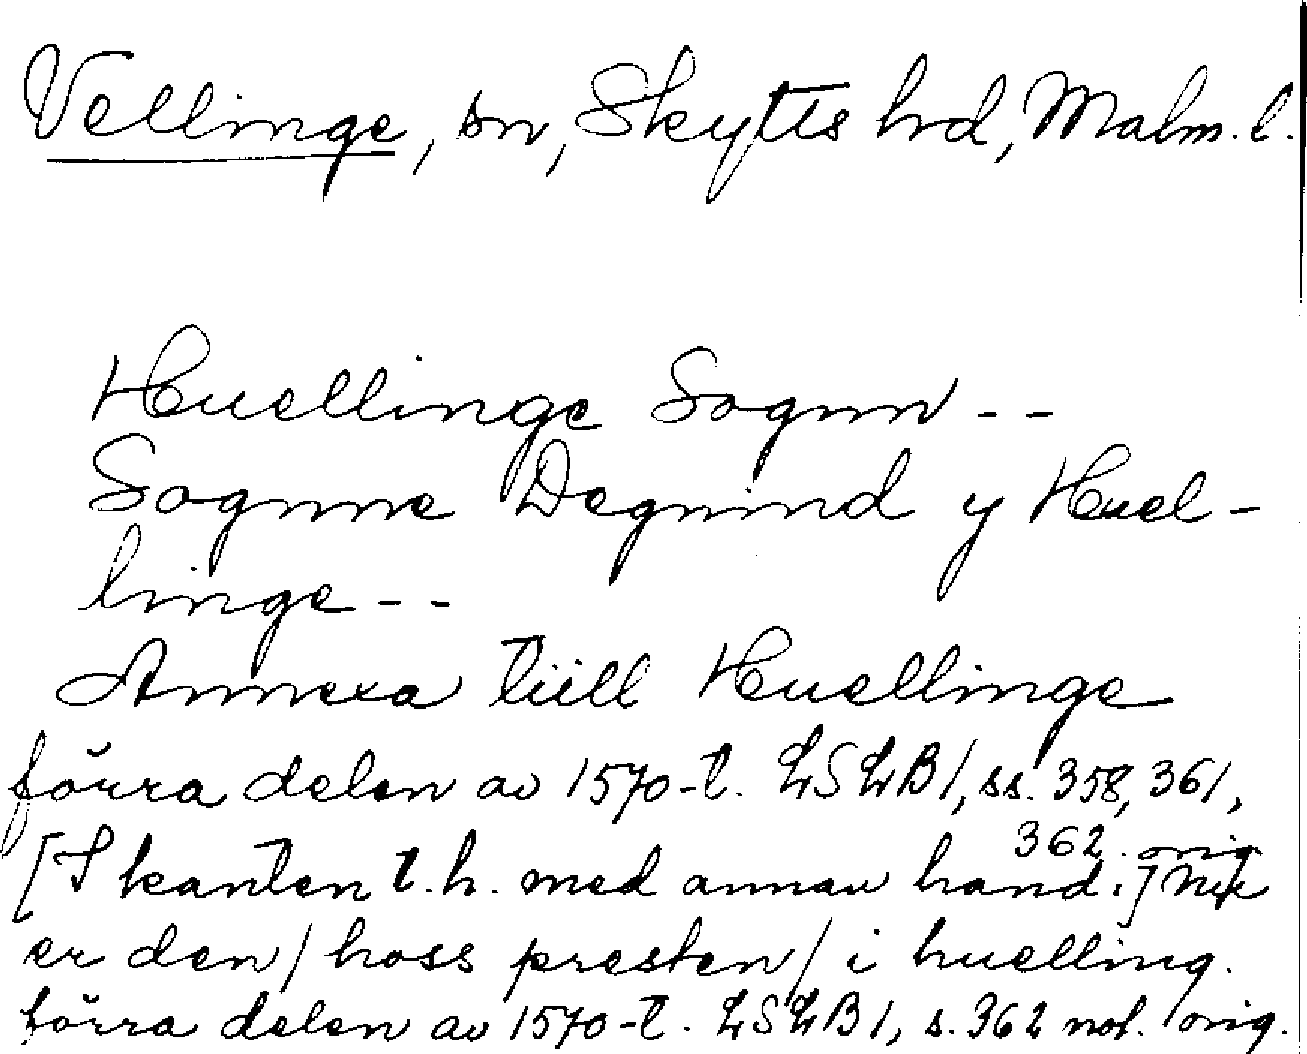 Vellinge, sn, Skytts hd, Malm. l.
Huellinge Sognn --
Sognne Degnind y Huel-
linge --
Annexa tiill Huellinge
förra delen av 1570-t. LSLB1, ss. 358, 361,
362. orig
[I kanten t.h. med annan hand:] Nu
er den / hoss presten / i huelling.
förra delen av 1570-t. LSLB1, s. 362 not. orig.